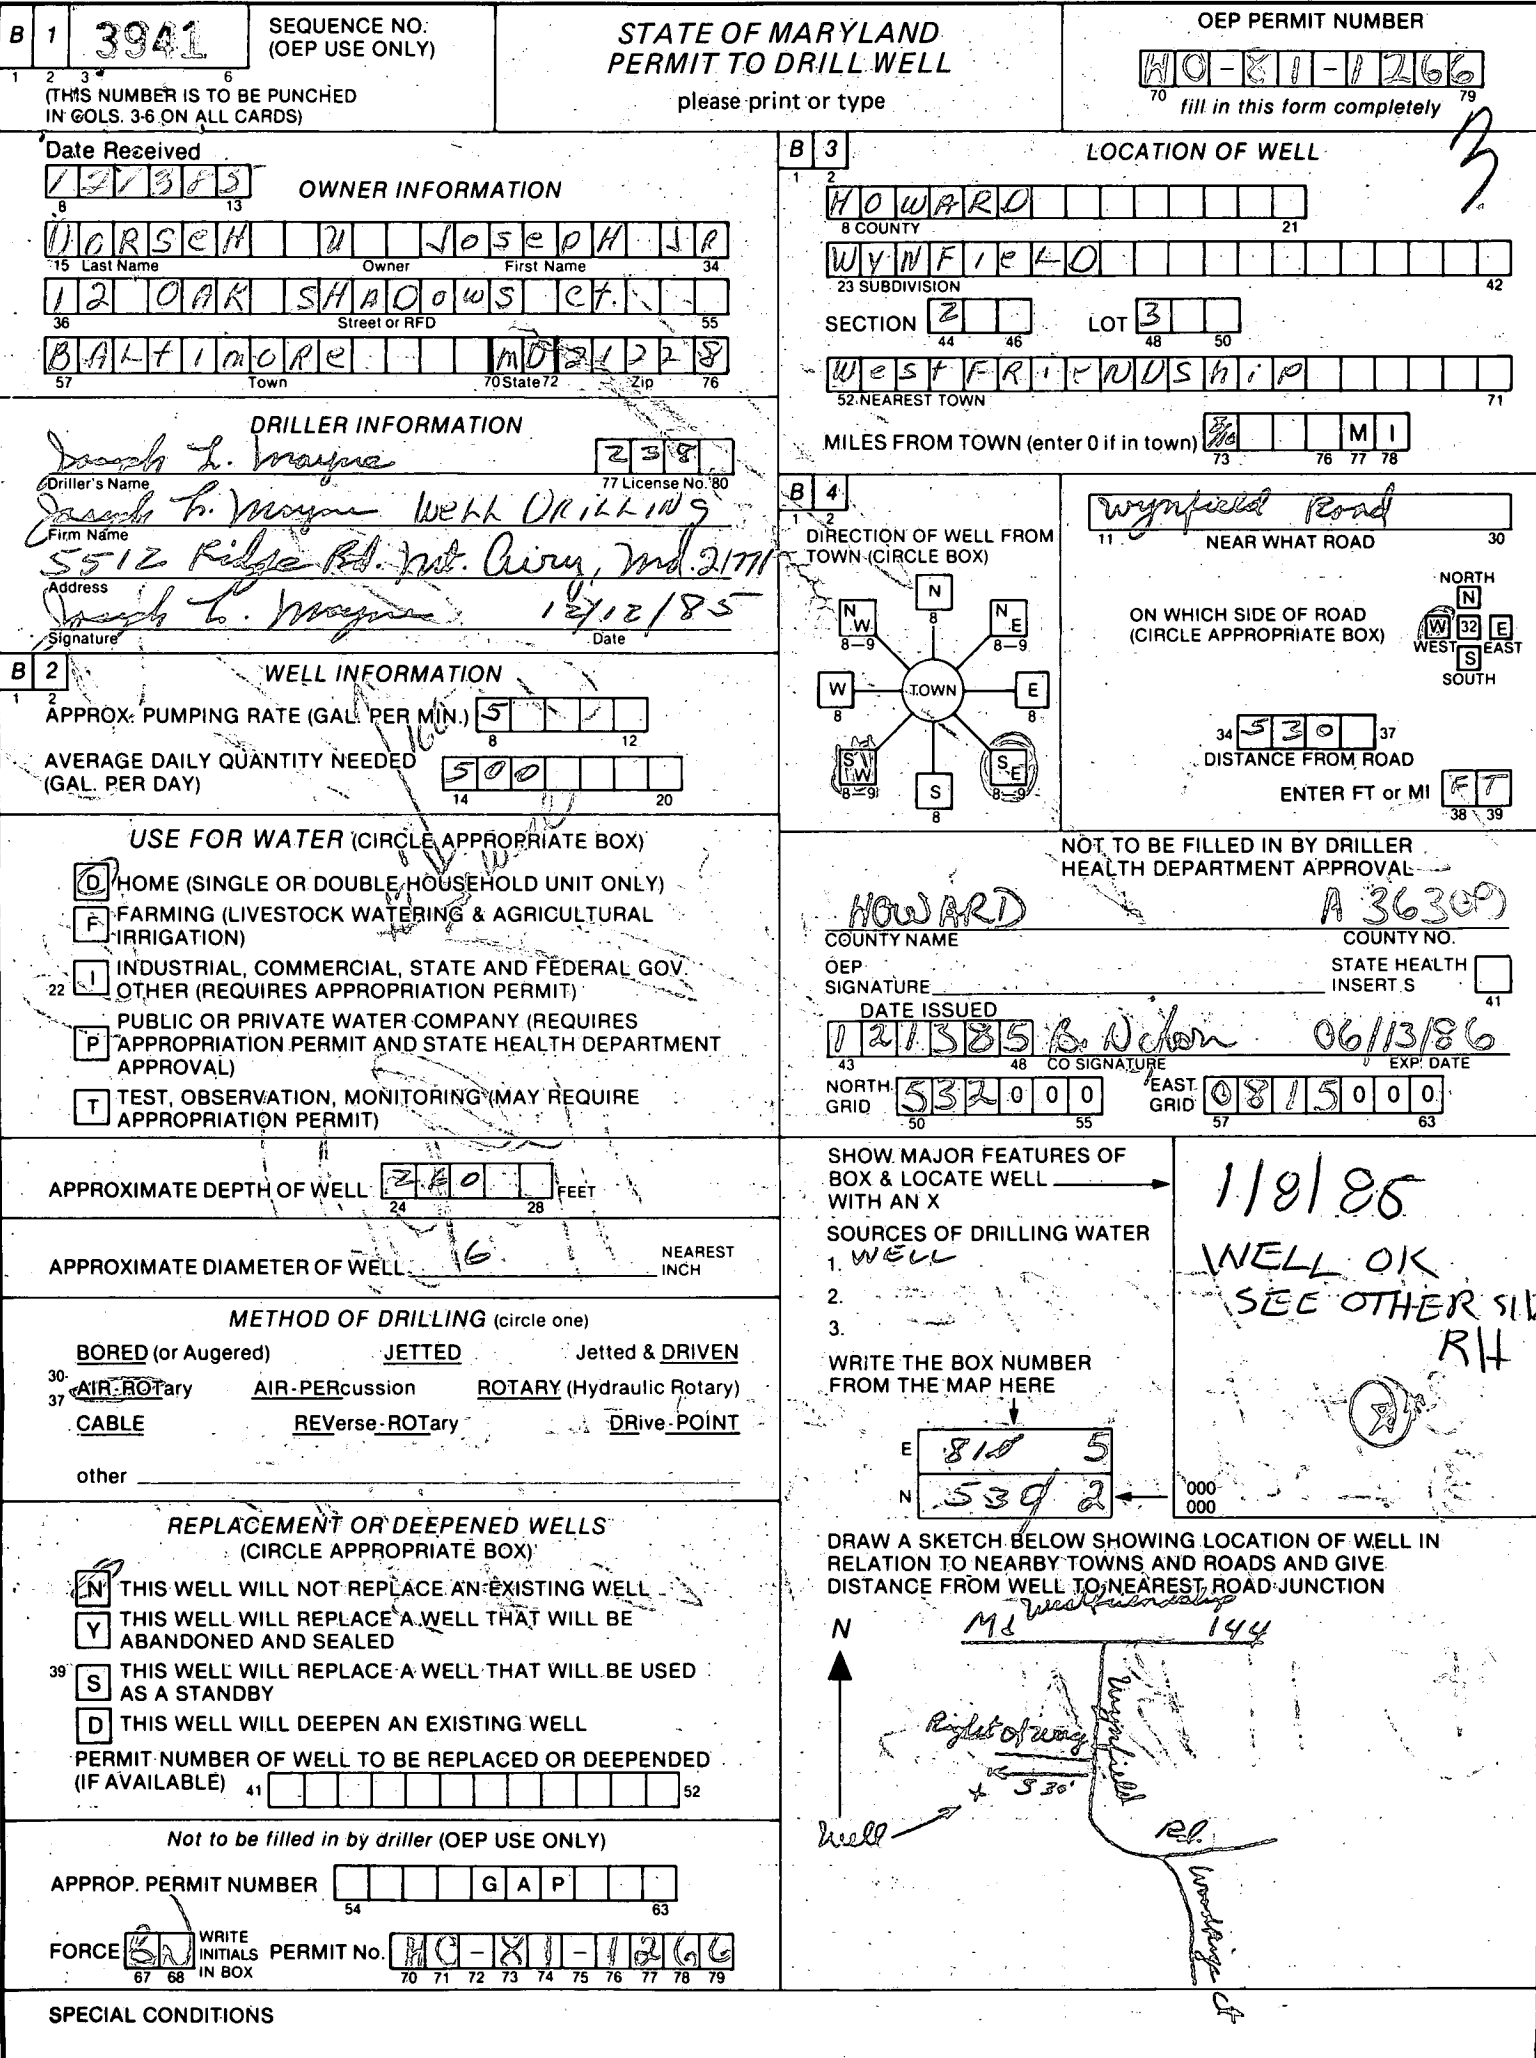 B 1 3941 SEQUENCE NO. (OEP USE ONLY)
1 2 3 6
(THIS NUMBER IS TO BE PUNCHED
IN COLS. 3-6 ON ALL CARDS)
STATE OF MARYLAND
PERMIT TO DRILL WELL
please print or type
OEP PERMIT NUMBER
HO-81-1266
70 79
fill in this form completely
3
Date Received
121385
8 13
OWNER INFORMATION
DORSCH U JOSEPH JR
15 Last Name Owner First Name 34
12 OAK SHADOWS CT.
36 Street or RFD 55
BALTIMORE MD 21228
57 Town 70 State 72 Zip 76
DRILLER INFORMATION
Joseph L. Mayne 238
Driller's Name 77 License No. 80
Joseph L. Mayne WELL DRILLING
Firm Name
5512 Ridge Rd. Mt. Airy, Md. 21771
Address
Joseph L. Mayne 12/12/85
Signature Date
B 2 WELL INFORMATION
1 2
APPROX. PUMPING RATE (GAL. PER MIN.) 5
8 12
AVERAGE DAILY QUANTITY NEEDED
(GAL. PER DAY) 500
14 20
USE FOR WATER (CIRCLE APPROPRIATE BOX)
D HOME (SINGLE OR DOUBLE HOUSEHOLD UNIT ONLY)
F FARMING (LIVESTOCK WATERING & AGRICULTURAL
IRRIGATION)
22 I INDUSTRIAL, COMMERCIAL, STATE AND FEDERAL GOV.
OTHER (REQUIRES APPROPRIATION PERMIT)
P PUBLIC OR PRIVATE WATER COMPANY (REQUIRES
APPROPRIATION PERMIT AND STATE HEALTH DEPARTMENT
APPROVAL)
T TEST, OBSERVATION, MONITORING (MAY REQUIRE
APPROPRIATION PERMIT)
APPROXIMATE DEPTH OF WELL FEET
24 28
APPROXIMATE DIAMETER OF WELL 6 NEAREST
INCH
METHOD OF DRILLING (circle one)
BORED (or Augered) JETTED Jetted & DRIVEN
30-37 AIR-ROTary AIR-PERcussion ROTARY (Hydraulic Rotary)
CABLE REVerse-ROTary DRive-POINT
other
REPLACEMENT OR DEEPENED WELLS
(CIRCLE APPROPRIATE BOX)
N THIS WELL WILL NOT REPLACE AN EXISTING WELL
Y THIS WELL WILL REPLACE A WELL THAT WILL BE
ABANDONED AND SEALED
39 S THIS WELL WILL REPLACE A WELL THAT WILL BE USED
AS A STANDBY
D THIS WELL WILL DEEPEN AN EXISTING WELL
PERMIT NUMBER OF WELL TO BE REPLACED OR DEEPENDED
(IF AVAILABLE) 41 52
Not to be filled in by driller (OEP USE ONLY)
APPROP. PERMIT NUMBER G A P
54 63
FORCE BN WRITE INITIALS IN BOX PERMIT No. HO-81-1266
67 68 70 71 72 73 74 75 76 77 78 79
SPECIAL CONDITIONS
B 3 LOCATION OF WELL
1 2
HOWARD
8 COUNTY 21
WYNFIELD
23 SUBDIVISION 42
SECTION 2 LOT 3
44 46 48 50
West FRIENDShip
52 NEAREST TOWN 71
MILES FROM TOWN (enter 0 if in town) M I
73 76 77 78
B 4
1 2
DIRECTION OF WELL FROM
TOWN (CIRCLE BOX)
N
8
N W N E
8-9 8-9
W TOWN E
8 8
S W S E
8-9 8-9
S
8
Wynfield Road
11 NEAR WHAT ROAD 30
ON WHICH SIDE OF ROAD
(CIRCLE APPROPRIATE BOX)
NORTH
N
W 32 E
WEST EAST
S
SOUTH
34 530 37
DISTANCE FROM ROAD
ENTER FT or MI FT
38 39
NOT TO BE FILLED IN BY DRILLER
HEALTH DEPARTMENT APPROVAL
HOWARD A 36309
COUNTY NAME COUNTY NO.
OEP
SIGNATURE
STATE HEALTH
INSERT S
41
DATE ISSUED
121385 06/13/86
43 48 CO SIGNATURE EXP. DATE
NORTH GRID 532000 EAST GRID 0815000
50 55 57 63
SHOW MAJOR FEATURES OF
BOX & LOCATE WELL
WITH AN X
SOURCES OF DRILLING WATER
1. WELL
2.
3.
WRITE THE BOX NUMBER
FROM THE MAP HERE
E 810 5
N 530 2
000
000
1/8/86
WELL OK
SEE OTHER SID
RH
DRAW A SKETCH BELOW SHOWING LOCATION OF WELL IN
RELATION TO NEARBY TOWNS AND ROADS AND GIVE
DISTANCE FROM WELL TO NEAREST ROAD JUNCTION
Westfriendship
N Md 144
Wynfield
Right of way
530'
Well
Rd.
Ct